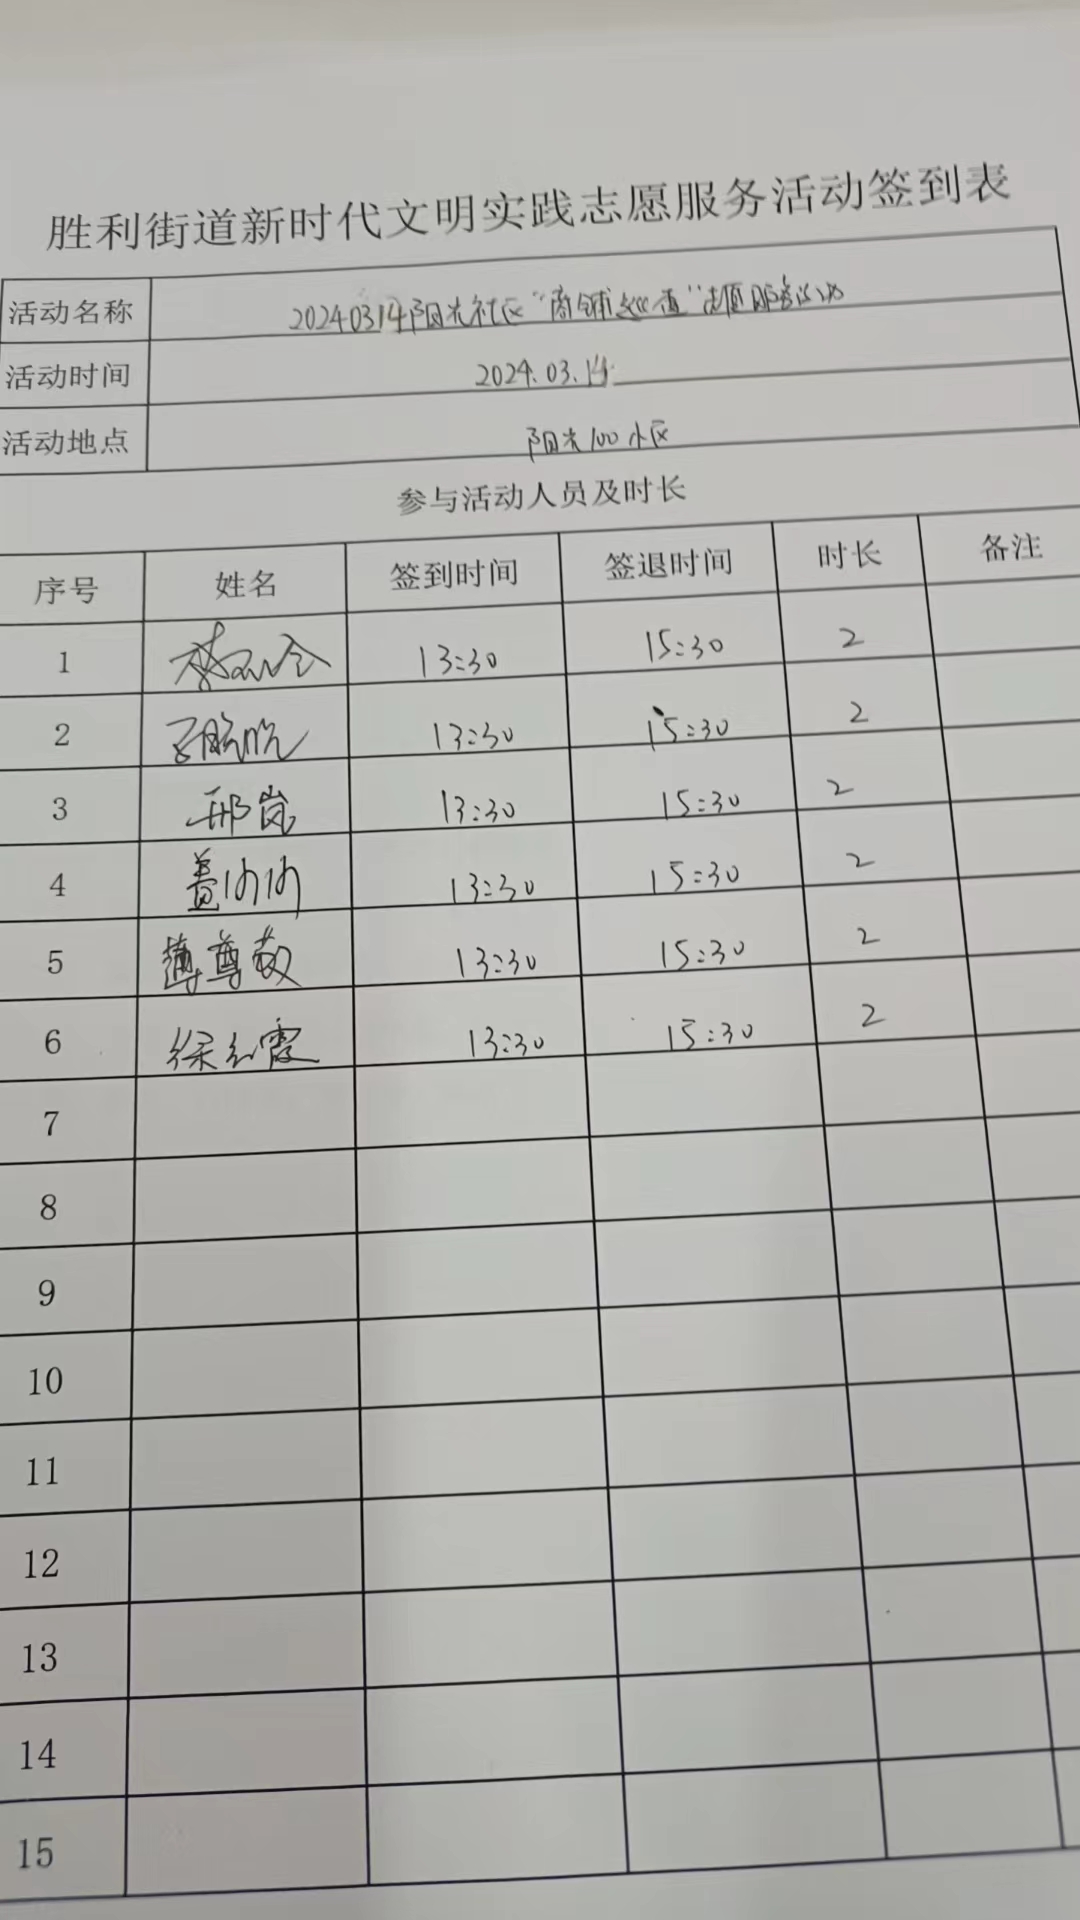 胜利街道新时代文明实践志愿服务活动签到表
活动名称 20240314阳光社区“商铺巡查”志愿服务活动
活动时间 2024.03.14
活动地点 阳光100小区
参与活动人员及时长
序号 姓名 签到时间 签退时间 时长 备注
1 13:30 15:30 2
2 13:30 15:30 2
3 邢岚 13:30 15:30 2
4 13:30 15:30 2
5 尊敬 13:30 15:30 2
6 徐红霞 13:30 15:30 2
7
8
9
10
11
12
13
14
15